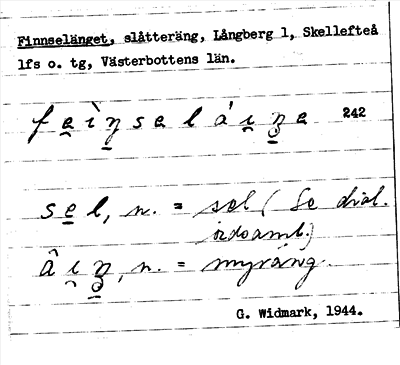 Finnselänget, slåtteräng, Långberg 1, Skellefteå
lfs o. tg, Västerbottens län.
fe̯ìŋselái̯ŋe 242
sel, n. = sel (Se dial.
ordsaml.)
âi̯ŋ, n. = myräng.
G. Widmark, 1944.